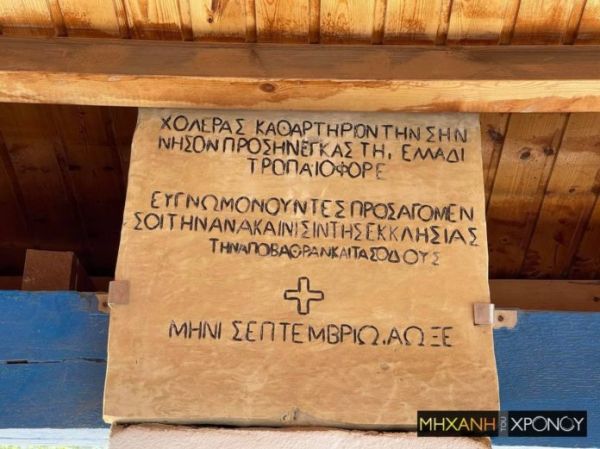 ΧΟΛΕΡΑΣ ΚΑΘΑΡΤΗΡΙΟΝ ΤΗΝ ΣΗΝ
ΝΗΣΟΝ ΠΡΟΣΗΝΕΓΚΑΣ ΤΗ, ΕΛΛΑΔΙ
ΤΡΟΠΑΙΟΦΟΡΕ
ΕΥΓΝΩΜΟΝΟΥΝΤΕΣ ΠΡΟΣΑΓΟΜΕΝ
ΣΟΙ ΤΗΝ ΑΝΑΚΑΙΝΙΣΙΝ ΤΗΣ ΕΚΚΛΗΣΙΑΣ
ΤΗΝ ΑΠΟΒΑΘΡΑΝ ΚΑΙ ΤΑΣ ΟΔΟΥΣ
ΜΗΝΙ ΣΕΠΤΕΜΒΡΙΩ. ΑΩΞΕ
ΜΗΧΑΝΗ ΤΟΥ ΧΡΟΝΟΥ